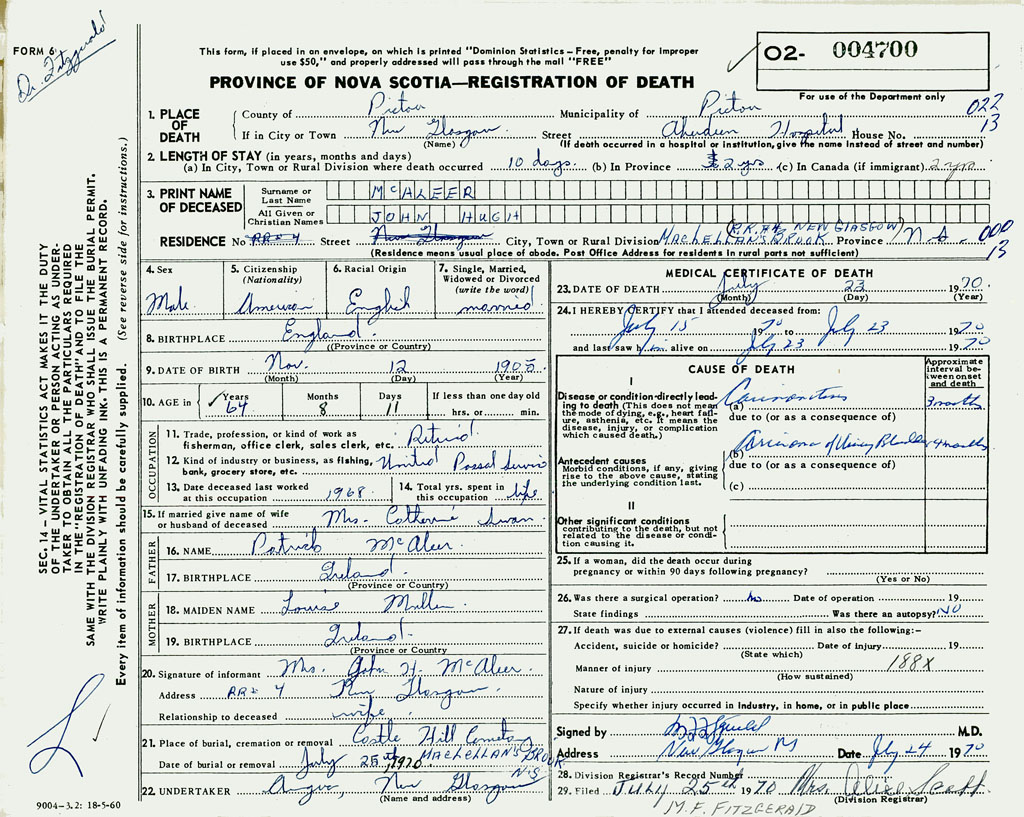 FORM 6
Dr. Fitzgerald
This form, if placed in an envelope, on which is printed "Dominion Statistics – Free, penalty for improper
use $50," and properly addressed will pass through the mail "FREE"
PROVINCE OF NOVA SCOTIA—REGISTRATION OF DEATH
02- 004700
For use of the Department only
022
13
1. PLACE OF DEATH
County of Pictou Municipality of Pictou
If in City or Town New Glasgow Street Aberdeen Hospital House No.
(Name) (If death occurred in a hospital or institution, give the name instead of street and number)
2. LENGTH OF STAY (in years, months and days)
(a) In City, Town or Rural Division where death occurred 10 days. (b) In Province 2 yrs (c) In Canada (if immigrant) 2 yrs
3. PRINT NAME OF DECEASED
Surname or Last Name McALEER
All Given or Christian Names JOHN HUGH
(R.R.#4 NEW GLASGOW)
RESIDENCE No RR#4 Street New Glasgow City, Town or Rural Division MACLELLAN'S BROOK Province N.S. 000
13
(Residence means usual place of abode. Post Office Address for residents in rural parts not sufficient)
4. Sex Male
5. Citizenship (Nationality) American
6. Racial Origin English
7. Single, Married, Widowed or Divorced (write the word) married
8. BIRTHPLACE England
((Province or Country)
9. DATE OF BIRTH Nov. 12 1905
(Month) (Day) (Year)
10. AGE in Years 64 Months 8 Days 11 If less than one day old hrs. or min.
OCCUPATION
11. Trade, profession, or kind of work as fisherman, office clerk, sales clerk, etc. Retired
12. Kind of industry or business, as fishing, bank, grocery store, etc. United Postal Service
13. Date deceased last worked at this occupation 1968
14. Total yrs. spent in this occupation life
15. If married give name of wife or husband of deceased Mrs. Catherine Swan
FATHER
16. NAME Patrick McAleer
17. BIRTHPLACE Ireland
(Province or Country)
MOTHER
18. MAIDEN NAME Louise Mullen
19. BIRTHPLACE Ireland
(Province or Country
20. Signature of informant Mrs. John H. McAleer
Address RR# 4 New Glasgow
Relationship to deceased wife
21. Place of burial, cremation or removal Castle Hill Cemetery
Date of burial or removal July 25th 1970 MACLELLAN'S BROOK
N.S
22. UNDERTAKER New Glasgow
(Name and address)
MEDICAL CERTIFICATE OF DEATH
23. DATE OF DEATH July 23 1970
(Month) (Day) (Year)
24. I HEREBY CERTIFY that I attended deceased from:
July 15 1970 to July 23 1970
and last saw him alive on July 23 1970
CAUSE OF DEATH
Approximate interval between onset and death
I
Disease or condition directly leading to death (This does not mean the mode of dying, e.g., heart failure, asthenia, etc. It means the disease, injury, or complication which caused death.)
(a) Carcinomatosis 3 months
due to (or as a consequence of)
Antecedent causes
Morbid conditions, if any, giving rise to the above cause, stating the underlying condition last.
(b) Carcinoma of Urinary Bladder 4 months
due to (or as a consequence of)
(c)
II
Other significant conditions
contributing to the death, but not related to the disease or condition causing it.
25. If a woman, did the death occur during pregnancy or within 90 days following pregnancy?
(Yes or No)
26. Was there a surgical operation? No Date of operation 19
State findings Was there an autopsy? NO
27. If death was due to external causes (violence) fill in also the following:–
Accident, suicide or homicide? Date of injury 19
(State which)
Manner of injury 188X
(How sustained)
Nature of injury
Specify whether injury occurred in Industry, in home, or in public place
Signed by M.D.
Address New Glasgow NS Date July 24 1970
28. Division Registrar's Record Number
29. Filed JULY 25th 1970 Mrs. Alice Scott
(Division Registrar)
M.F. FITZGERALD
SEC. 14 – VITAL STATISTICS ACT MAKES IT THE DUTY
OF THE UNDERTAKER OR PERSON ACTING AS UNDER-
TAKER TO OBTAIN ALL THE PARTICULARS REQUIRED
IN THE "REGISTRATION OF DEATH" AND TO FILE THE
SAME WITH THE DIVISION REGISTRAR WHO SHALL ISSUE THE BURIAL PERMIT.
WRITE PLAINLY WITH UNFADING INK. THIS IS A PERMANENT RECORD.
Every item of information should be carefully supplied. (See reverse side for instructions.)
9004–3.2: 18-5-60